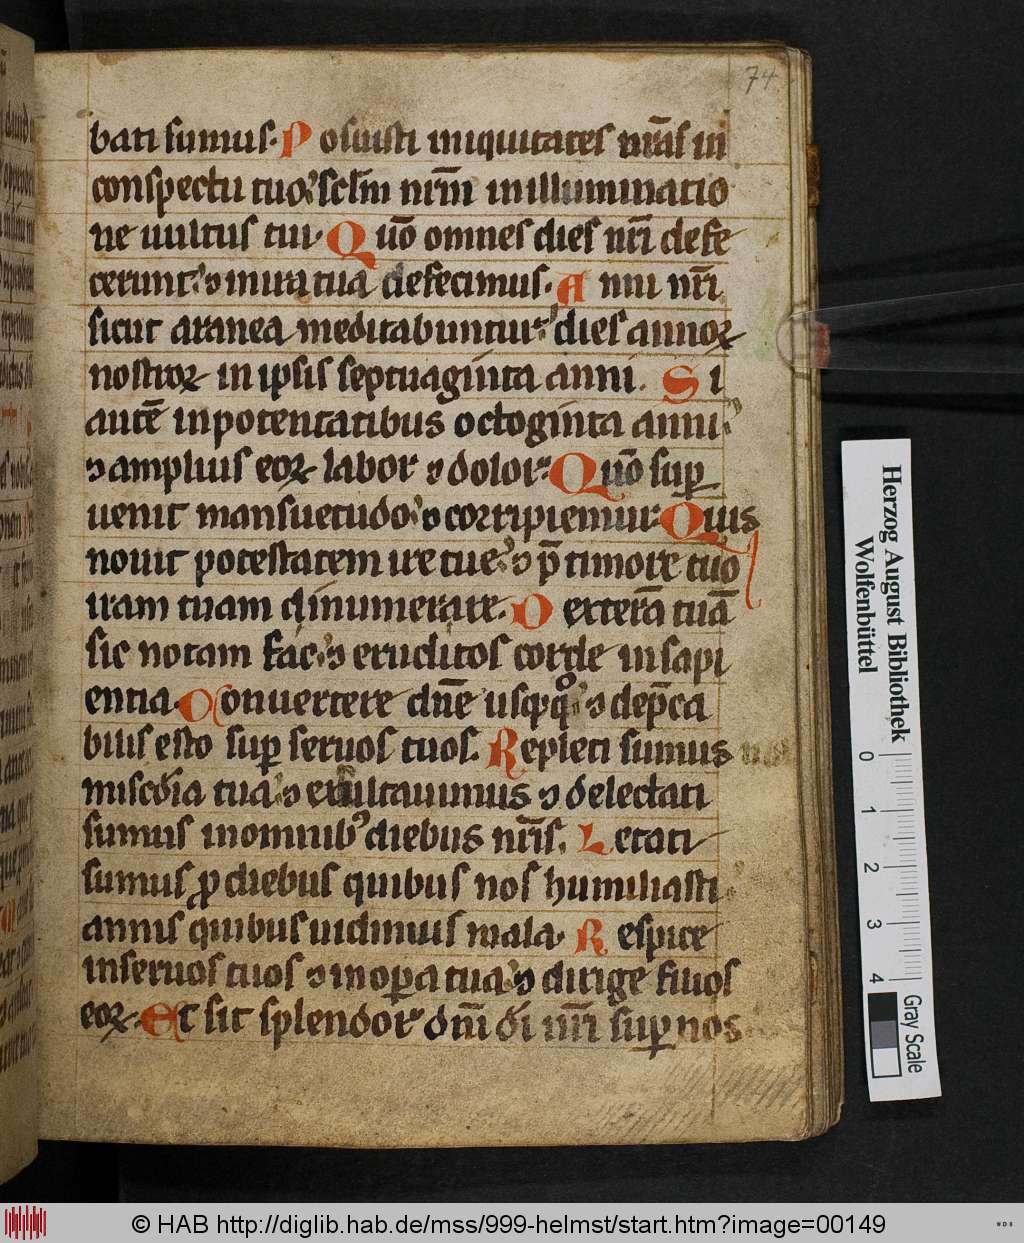 74
bati sumus. Posuisti iniquitates nr̄as in
conspectu tuo scl̄m nr̄m in illuminatio
ne uultus tui. Quō omnes dies nr̄i defe
cerunt ⁊ in ira tua defecimus. Anni nr̄i
sicut aranea meditabuntur dies annoꝝ
nostroꝝ in ipsis septuaginta anni. Si
autē in potentatibus octoginta anni
⁊ amplius eoꝝ labor ⁊ dolor. Quō suꝑ
uenit mansuetudo ⁊ corripiemur. Quis
nouit potestatem ire tue ⁊ p̄ timore tuo
iram tuam dinumerare. Dexterā tuā
sic notam fac ⁊ eruditos corde in sapi
entia. Conuertere dn̄e usq̨q̊ ⁊ dep̄ca
bilis esto suꝑ seruos tuos. Repleti sumus
miscd̄ia tua ⁊ exultauimus ⁊ delectati
sumus in omnibꝰ diebus nr̄is. Letati
sumus ꝓ diebus quibus nos humiliasti
annis quibus uidimus mala. Respice
in seruos tuos ⁊ in oꝑa tua ⁊ dirige fiuos
eoꝝ. Et sit splendor dn̄i di̅ nr̄i suꝑ nos
Herzog August Bibliothek
Wolfenbüttel
0 1 2 3 4
Gray Scale
© HAB http://diglib.hab.de/mss/999-helmst/start.htm?image=00149